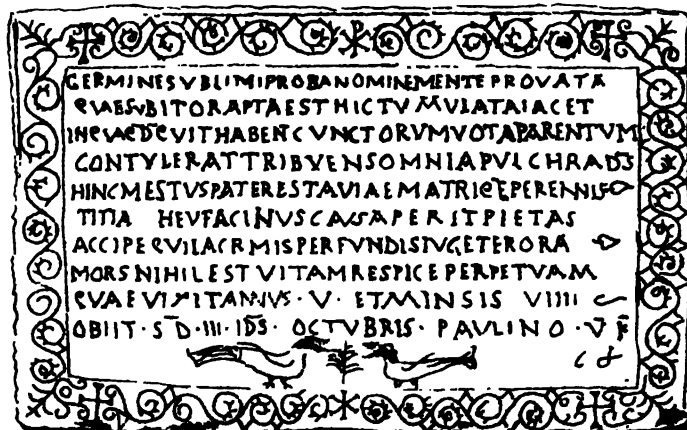 GERMINESVBLIMIPROBANOMINEMENTEPROVATA
QVAESVBITORAPTAESTHICTVMVLATAIACET
INQVAEDQVITHABENCVNCTORVMVOTAPARENTVM
CONTVLERATTRIBVENSOMNIAPVLCHRADS
HINCMESTVSPATERESTAVIAEMATRIQEPERENNIS
TITIA HEVFACINVSCAVSAPERITPIETAS
ACCIPEQVILACRMISPERFVNDISIVGETERORA
MORSNIHILESTVITAMRESPICEPERPETVAM
QVAEVIXITANNVS · V · ETMINSIS VIIII
OBIIT · SD · III · IDS · OCTVBRIS · PAVLINO · V